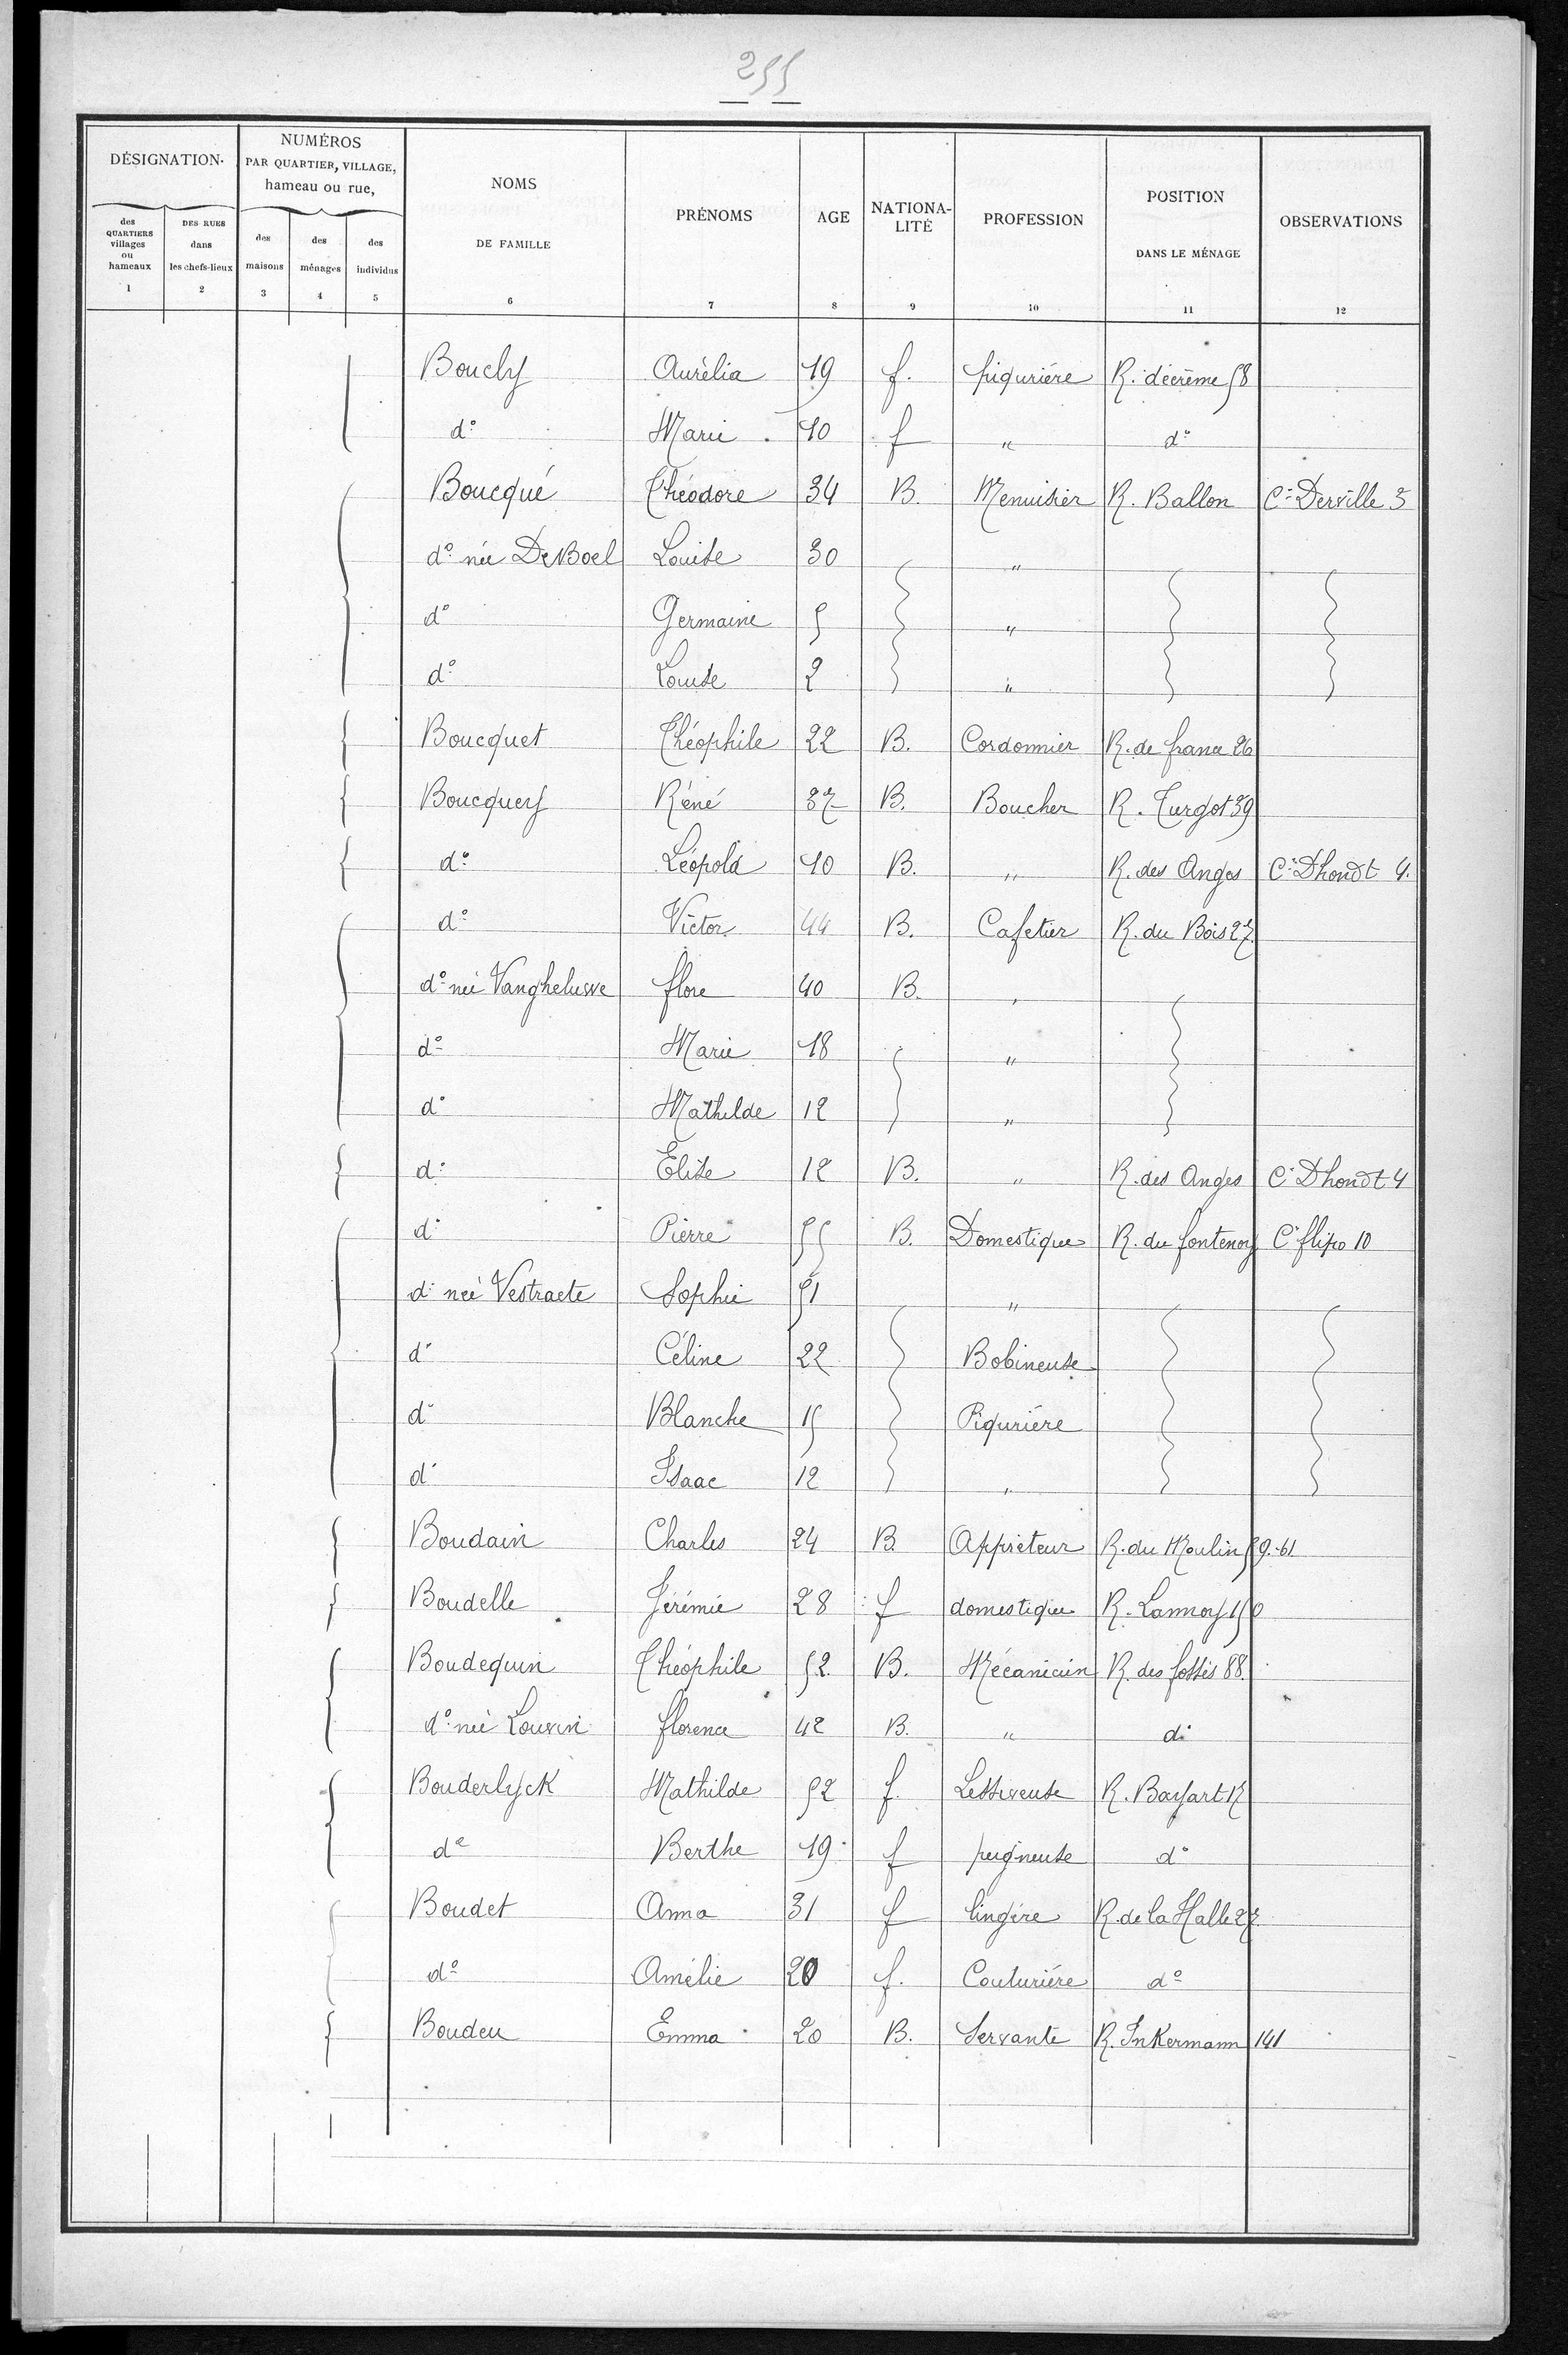 255
DÉSIGNATION
NUMÉROS
PAR QUARTIER, VILLAGE,
hameau ou rue,
NOMS
DE FAMILLE
PRÉNOMS
AGE
NATIONA-
LITÉ
PROFESSION
POSITION
DANS LE MÉNAGE
OBSERVATIONS
des
QUARTIERS
villages
ou
hameaux
DES RUES
dans
les chefs-lieux
des
maisons
des
ménages
des
individus
1 2 3 4 5 6 7 8 9 10 11 12
Boucly Aurélia 19 f. piqurière R. décrème 58
d° Marie 10 f " d°
Boucqué Théodore 34 B. Menuisier R. Ballon C. Derville 3
d° née DeBoel Louise 30 "
d° Germaine 5 "
d° Louise 2 "
Boucquet Théophile 22 B. Cordonnier R. de france 26
Boucquey Réné 37 B. Boucher R. Turgot 39
d° Léopold 10 B. " R. des Anges C. Dhondt 4.
d° Victor 44 B. Cafetier R. du Bois 27
d° née Vangheluwe flore 40 B. "
d° Marie 18 "
d° Mathilde 12 "
d° Elise 12 B. " R. des Anges C. Dhondt 4
d° Pierre 55 B. Domestique R. du fontenoy C. flipo 10
d° née Vestraete Sophie 51 "
d° Céline 22 Bobineuse
d° Blanche 15 Piqurière
d° Isaac 12 "
Boudain Charles 24 B. Appréteur R. du Moulin 59.-61
Boudelle Jérémie 28 f domestique R. Lannoy 150
Boudequin Théophile 52 B. Mécanicien R. des fossés 88.
d° née Louvin florence 42 B. " d°
Bouderlyck Mathilde 52 f. Lessiveuse R. Bayart
d° Berthe 19 f peigneuse d°
Boudet Anna 31 f lingère R. de la Halle 27
d° Amélie 20 f. Couturière d°
Boudeu Emma 20 B. Servante R. Inkermann 141